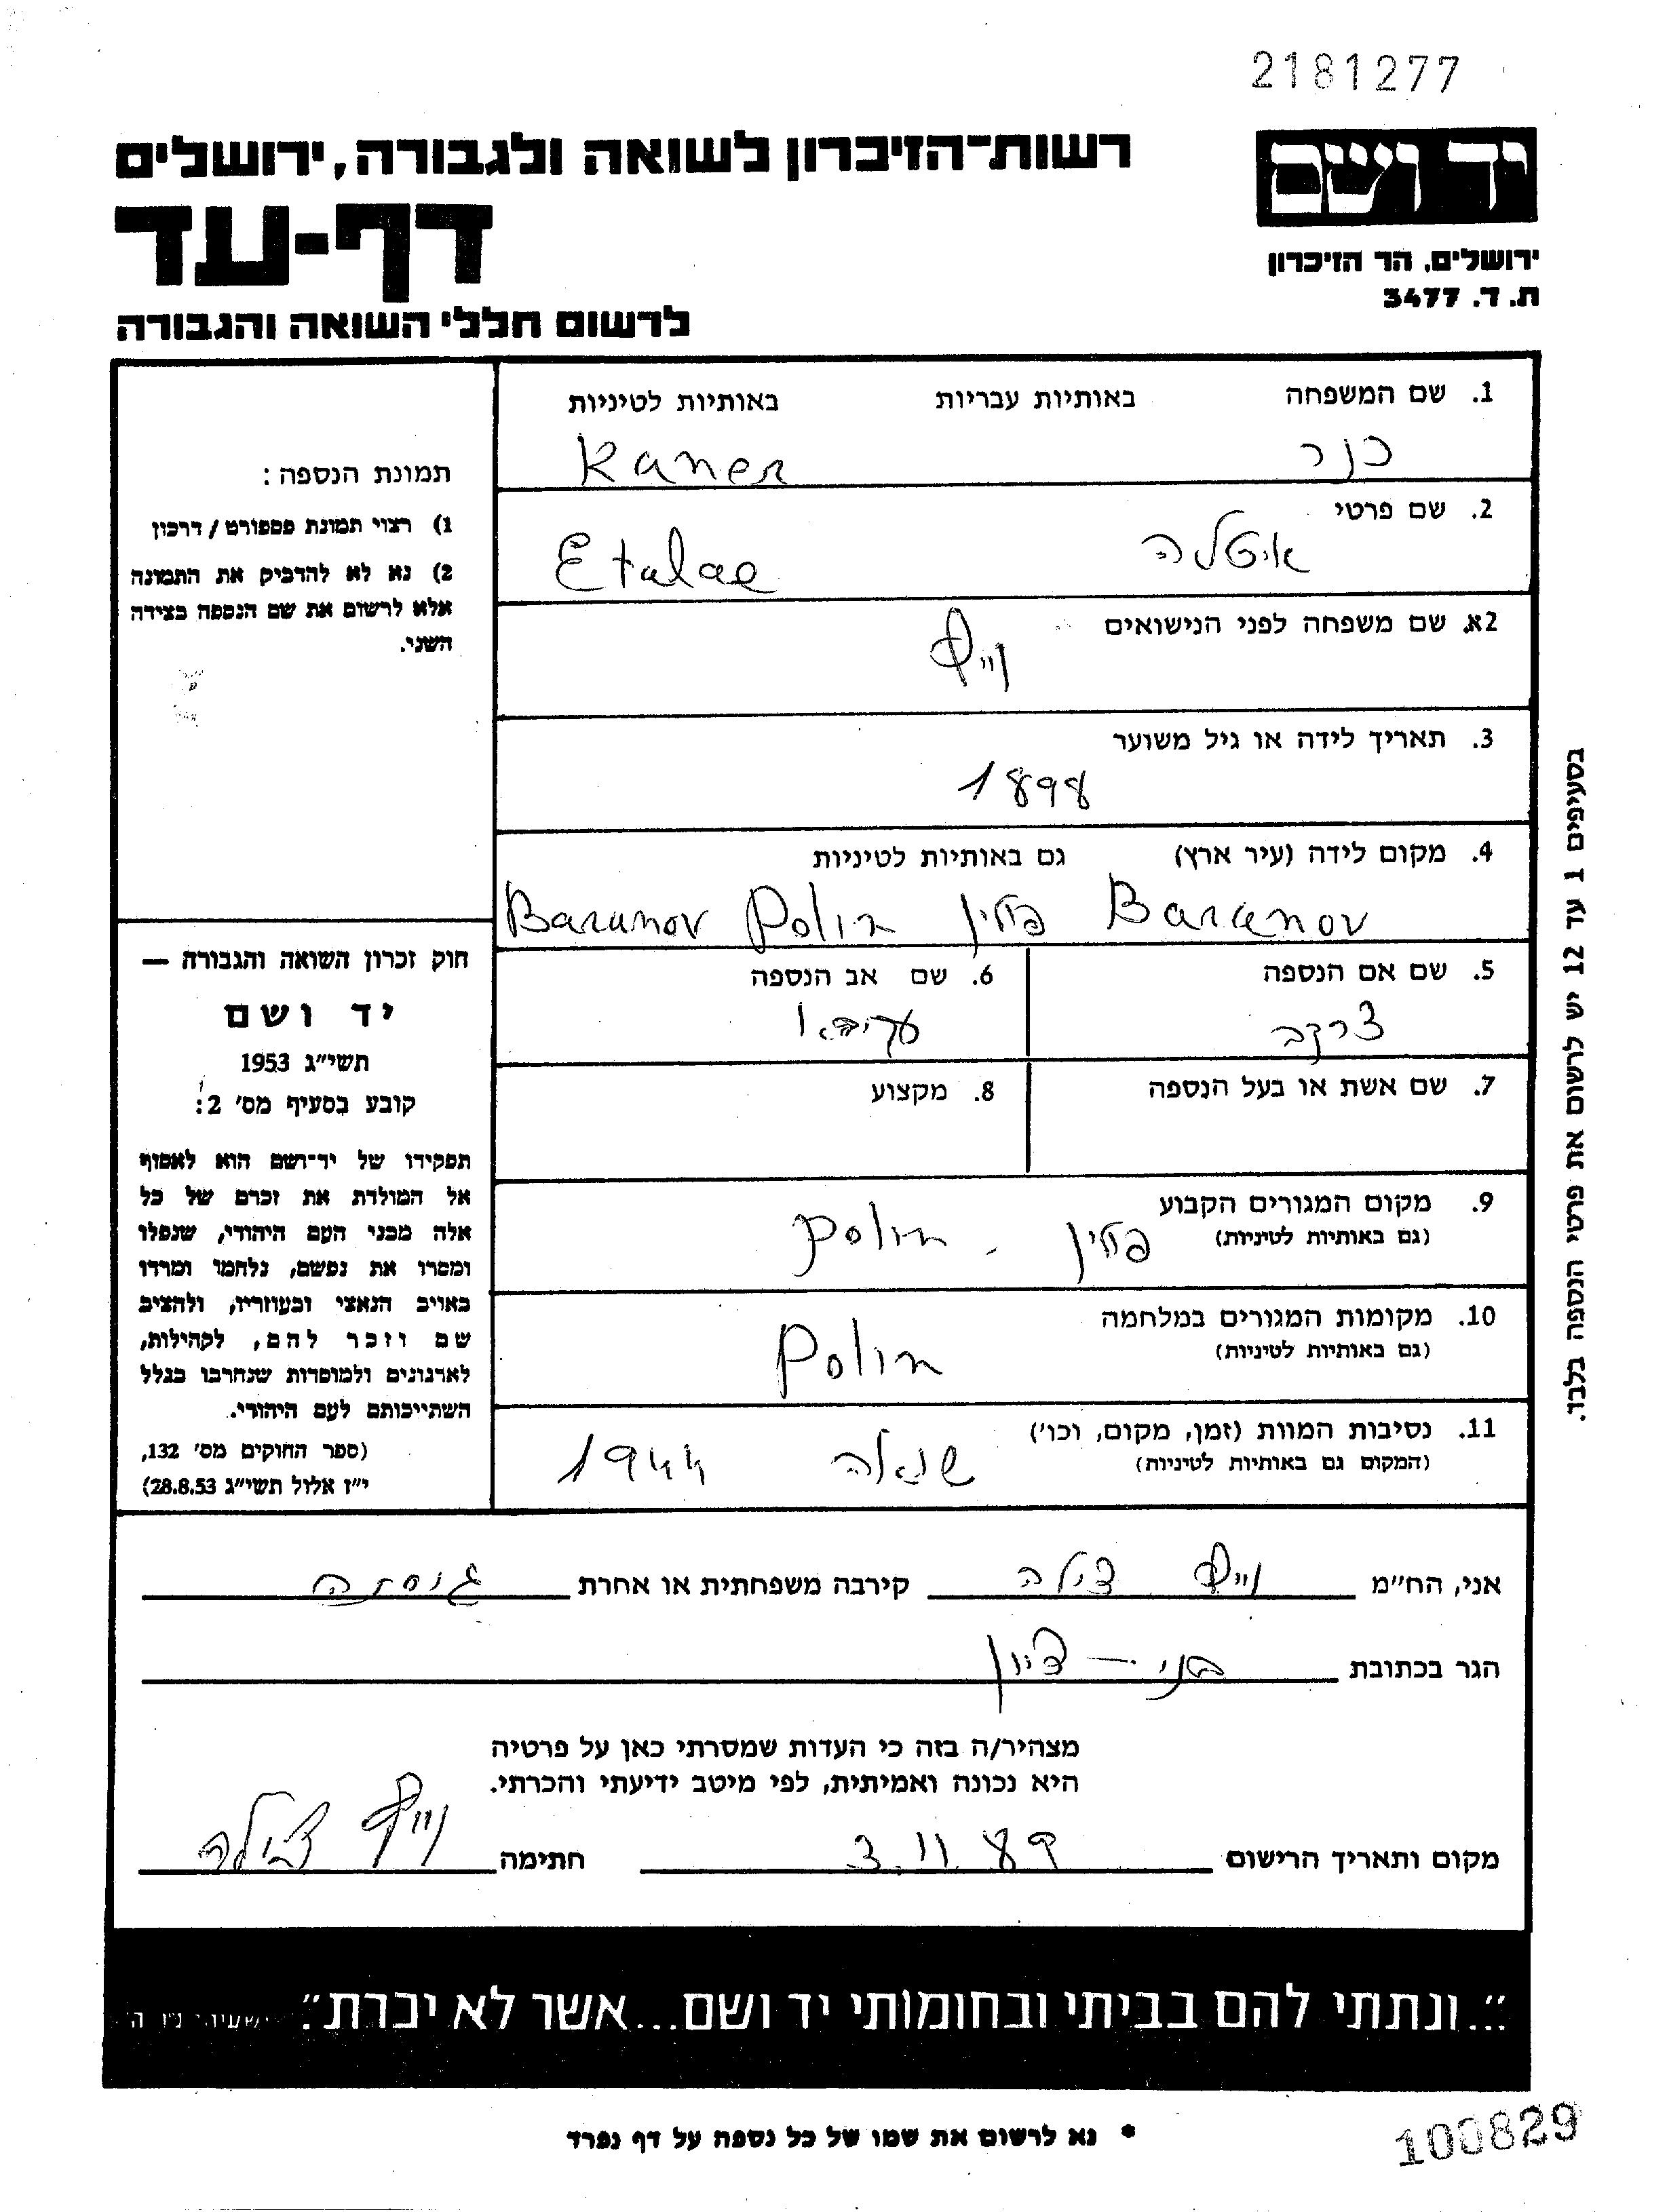 2181277
רשות־הזיכרון לשואה ולגבורה, ירושלים
יד ושם
דף-עד
ירושלים, הר הזיכרון
ת. ד. 3477
לרשום חללי השואה והגבורה
1. שם המשפחה באותיות עבריות באותיות לטיניות
כנר Kaner
2. שם פרטי
איטלה Etalae
2א. שם משפחה לפני הנישואים
וייס
3. תאריך לידה או גיל משוער
1898
4. מקום לידה (עיר ארץ) גם באותיות לטיניות
Baranov פולין Polin Baranov
5. שם אם הנספה 6. שם אב הנספה
7. שם אשת או בעל הנספה 8. מקצוע
9. מקום המגורים הקבוע
(גם באותיות לטיניות)
פולין - Polin
10. מקומות המגורים במלחמה
(גם באותיות לטיניות)
Polin
11. נסיבות המוות (זמן, מקום, וכו')
(המקום גם באותיות לטיניות)
שואה 1944
תמונת הנספה:
1) רצוי תמונת פספורט/דרכון
2) נא לא להדביק את התמונה
אלא לרשום את שם הנספה בצידה
השני.
חוק זכרון השואה והגבורה —
יד ושם
תשי"ג 1953
קובע בסעיף מס' 2:
תפקידו של יד־ושם הוא לאסוף
אל המולדת את זכרם של כל
אלה מבני העם היהודי, שנפלו
ומסרו את נפשם, נלחמו ומרדו
באויב הנאצי ובעוזריו, ולהציב
שם וזכר להם, לקהילות,
לארגונים ולמוסדות שנחרבו בגלל
השתייכותם לעם היהודי.
(ספר החוקים מס' 132,
י"ז אלול תשי"ג 28.8.53)
בסעיפים 1 עד 12 יש לרשום את פרטי הנספה בלבד.
אני, הח"מ וייס צילה קירבה משפחתית או אחרת גיסתה
הגר בכתובת בני-ציון
מצהיר/ה בזה כי העדות שמסרתי כאן על פרטיה
היא נכונה ואמיתית, לפי מיטב ידיעתי והכרתי.
מקום ותאריך הרישום 3.11.89 חתימה וייס צילה
"...ונתתי להם בביתי ובחומותי יד ושם...אשר לא יכרת" ישעיהו נ"ו ה'
* נא לרשום את שמו של כל נספה על דף נפרד
100829